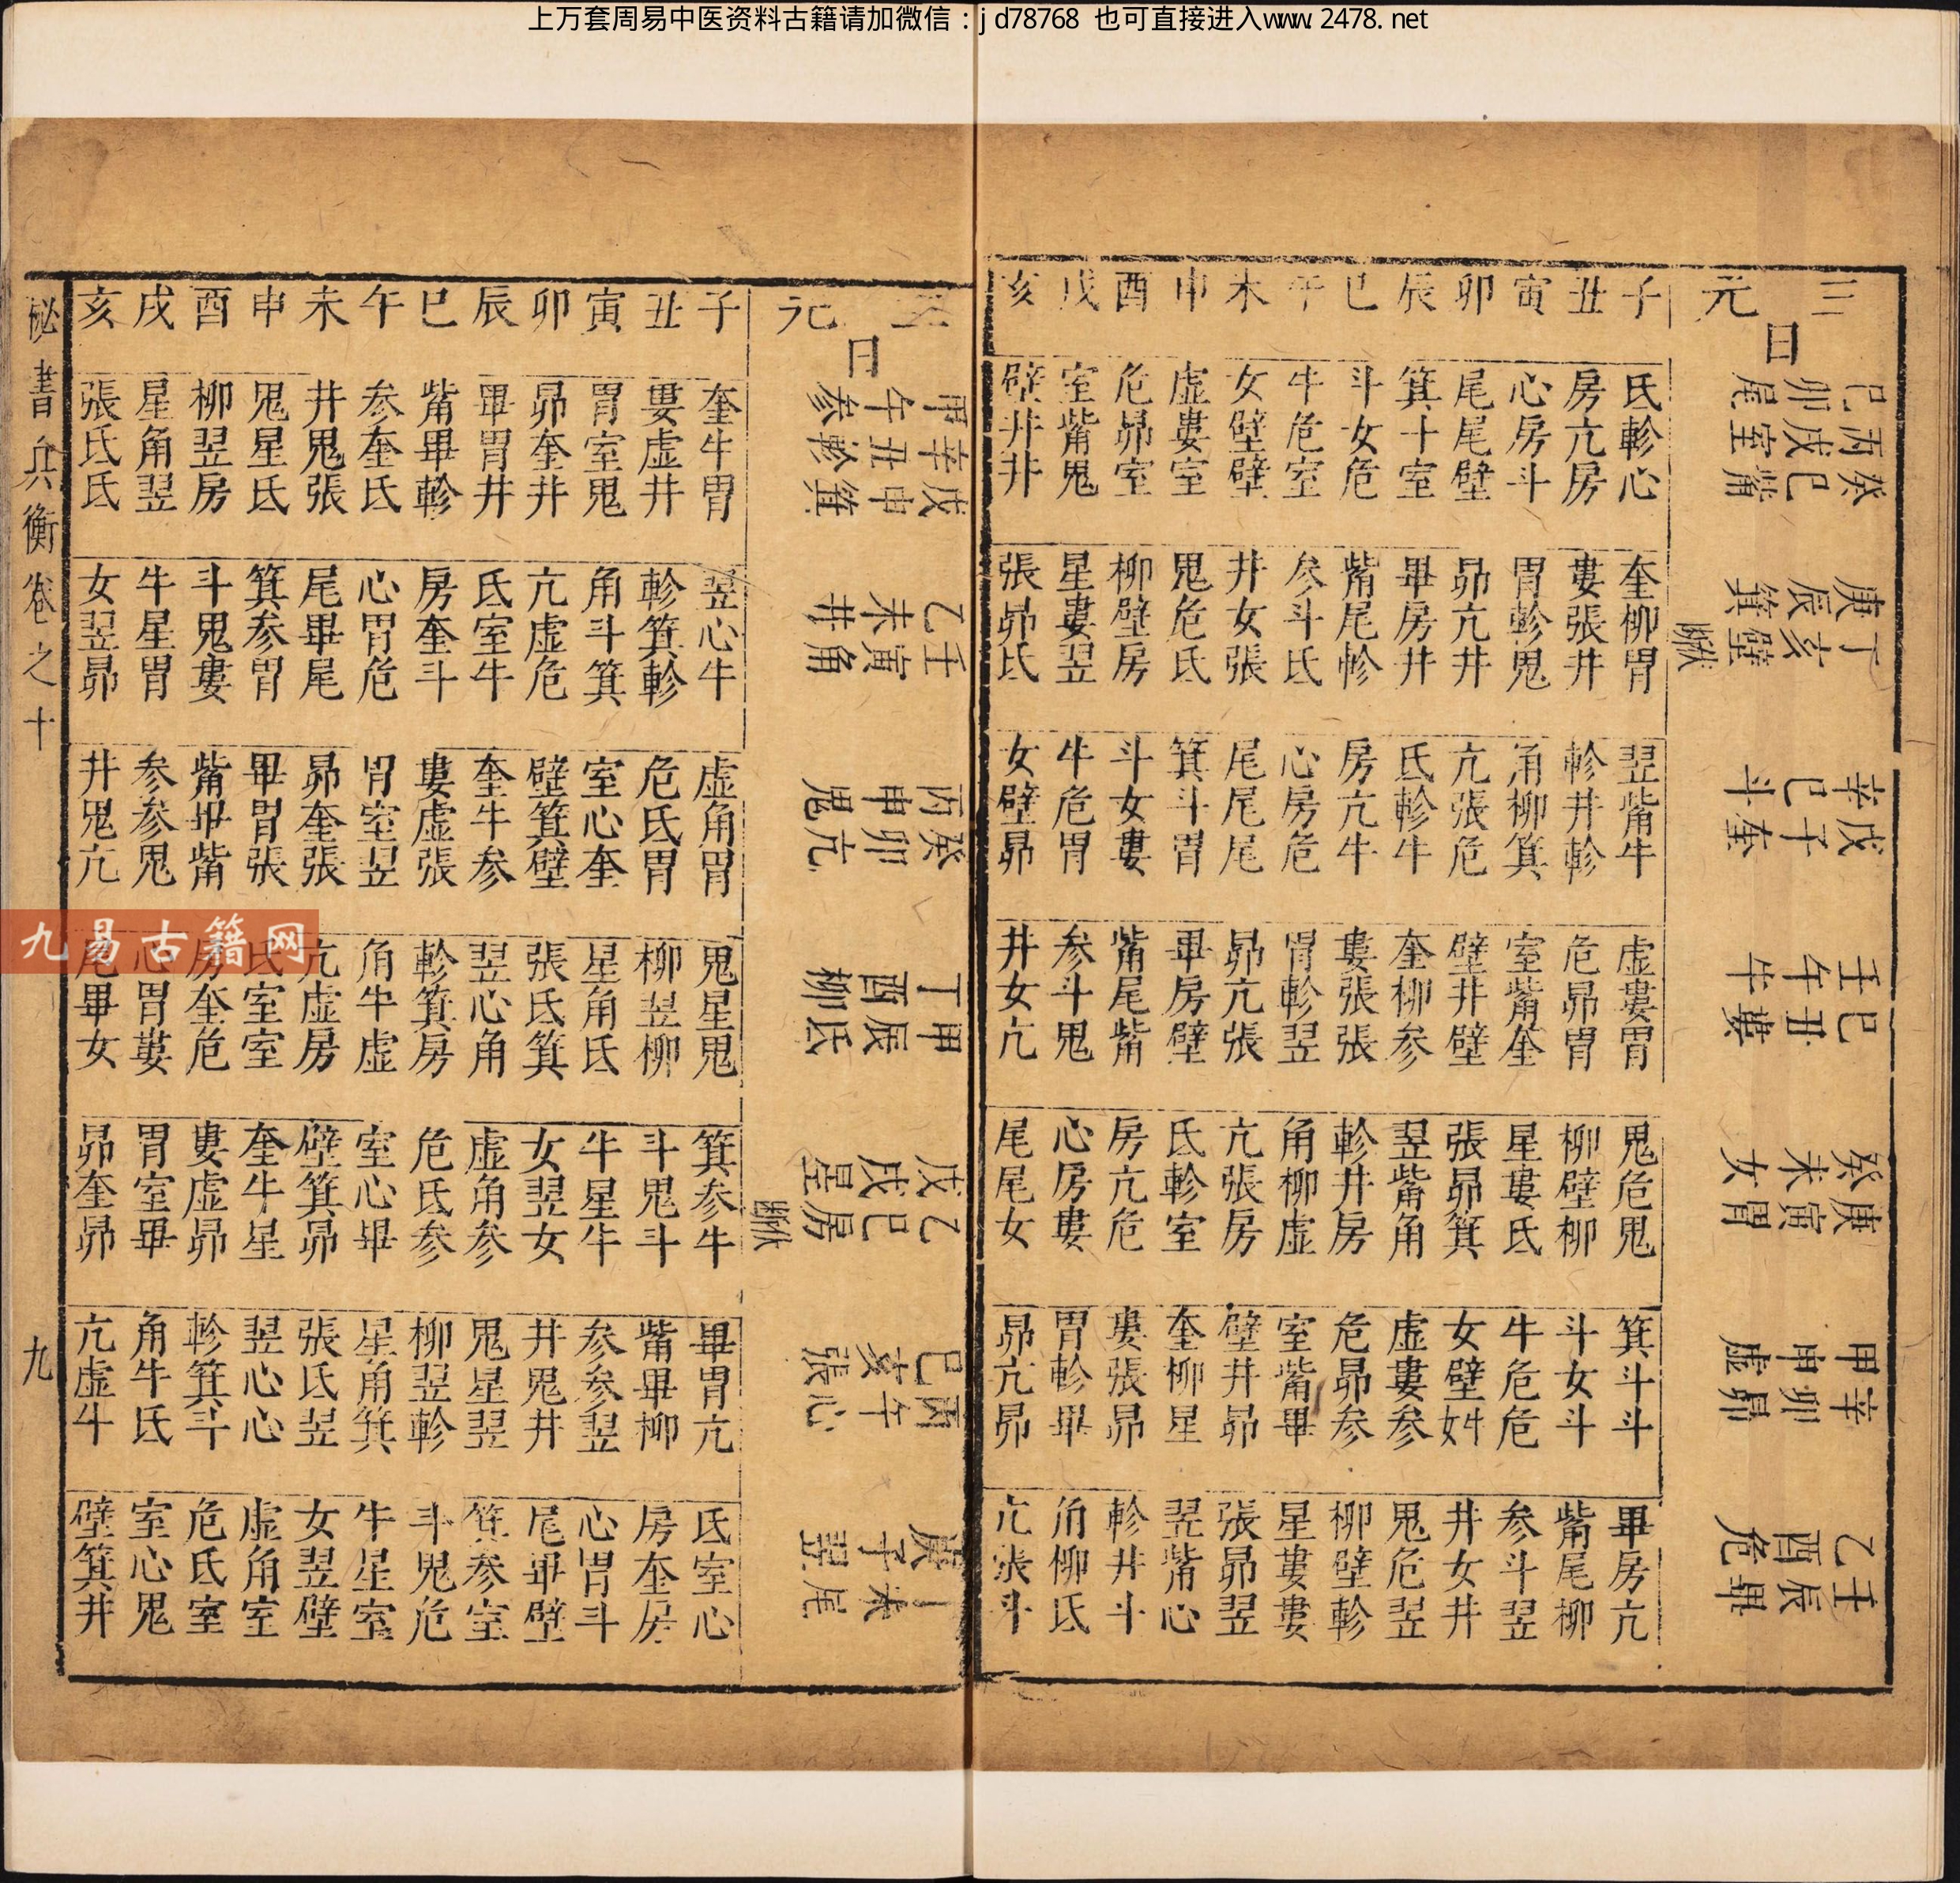 上万套周易中医资料古籍请加微信：jd78768 也可直接进入www.2478.net
三元
日
巳丙癸 庚丁 辛戊 壬巳 癸庚 甲辛 乙壬
卯戌巳 辰亥 巳子 午丑 未寅 申卯 酉辰
尾室觜 箕壁 斗奎 牛婁 女胃 虛昴 危畢
斷伏
子 氐軫心 奎柳胃 翌觜牛 虛婁胃 鬼危鬼 箕斗斗 畢房亢
丑 房亢房 婁張井 軫井軫 危昴胃 柳壁柳 斗女斗 觜尾柳
寅 心房斗 胃軫鬼 角柳箕 室觜奎 星婁氐 牛危危 参斗翌
卯 尾尾壁 昴亢井 亢張危 壁井壁 張昴箕 女壁 井女井
辰 箕十室 畢房井 氐軫牛 奎柳参 翌觜角 虛婁参 鬼危翌
巳 斗女危 觜尾軫 房亢牛 婁張張 軫井房 危昴参 柳壁軫
午 牛危室 参斗氐 心房危 胃軫翌 角柳虛 室觜畢 星婁婁
未 女壁壁 井女張 尾尾尾 昴亢張 亢張房 壁井昴 張昴翌
申 虛婁室 鬼危氐 箕斗胃 畢房壁 氐軫室 奎柳星 翌觜心
酉 危昴室 柳壁房 斗女婁 觜尾觜 房亢危 婁張昴 軫井斗
戌 室觜鬼 星婁翌 牛危胃 参斗鬼 心房婁 胃軫畢 角柳氐
亥 壁井井 張昴氐 女壁昴 井女亢 尾尾女 昴亢昴 亢張斗
元
日
甲辛戊 乙壬 丙癸 丁甲 戊乙 巳丙 庚丁
午丑申 未寅 申卯 酉辰 戌巳 亥午 子未
参軫箕 井角 鬼亢 柳氐 星房 張心 翌尾
斷伏
子 奎牛胃 翌心牛 虛角胃 鬼星鬼 箕参牛 畢胃亢 氐室心
丑 婁虛井 軫箕軫 危氐胃 柳翌柳 斗鬼斗 觜畢柳 房奎房
寅 胃室鬼 角斗箕 室心奎 星角氐 牛星牛 参参翌 心胃斗
卯 昴奎井 亢虛危 壁箕壁 張氐箕 女翌女 井鬼井 尾畢壁
辰 畢胃井 氐室牛 奎牛参 翌心角 虛角参 鬼星翌 箕参室
巳 觜畢軫 房奎斗 婁虛張 軫箕房 危氐参 柳翌軫 斗鬼危
午 参奎氐 心胃危 胃室翌 角牛虛 室心畢 星角箕 牛星室
未 井鬼張 尾畢尾 昴奎張 亢虛房 壁箕昴 張氐翌 女翌壁
申 鬼星氐 箕参胃 畢胃張 氐室室 奎牛星 翌心心 虛角室
酉 柳翌房 斗鬼婁 觜畢觜 房奎危 婁虛昴 軫箕斗 危氐室
戌 星角翌 牛星胃 参参鬼 心胃婁 胃室畢 角牛氐 室心鬼
亥 張氐氐 女翌昴 井鬼亢 尾畢女 昴奎昴 亢虛牛 壁箕井
秘書兵衡卷之十
九
九易古籍网